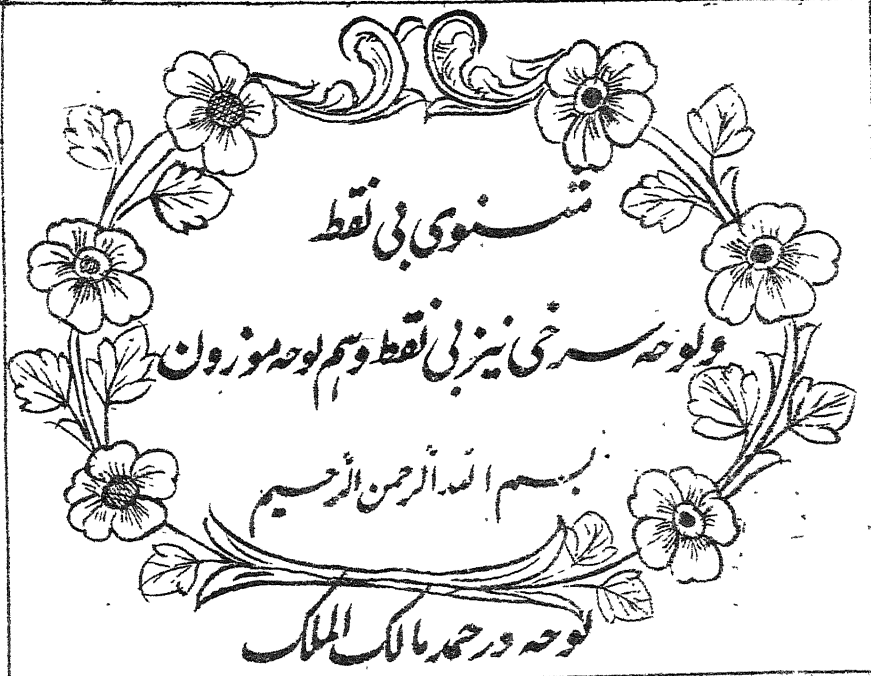 مثنوی بی نقط
ولوحه سرخی نیز بی نقط وسم لوحه موزون
بسم الله الرحمن الرحیم
لوحه در حمد مالک الملک